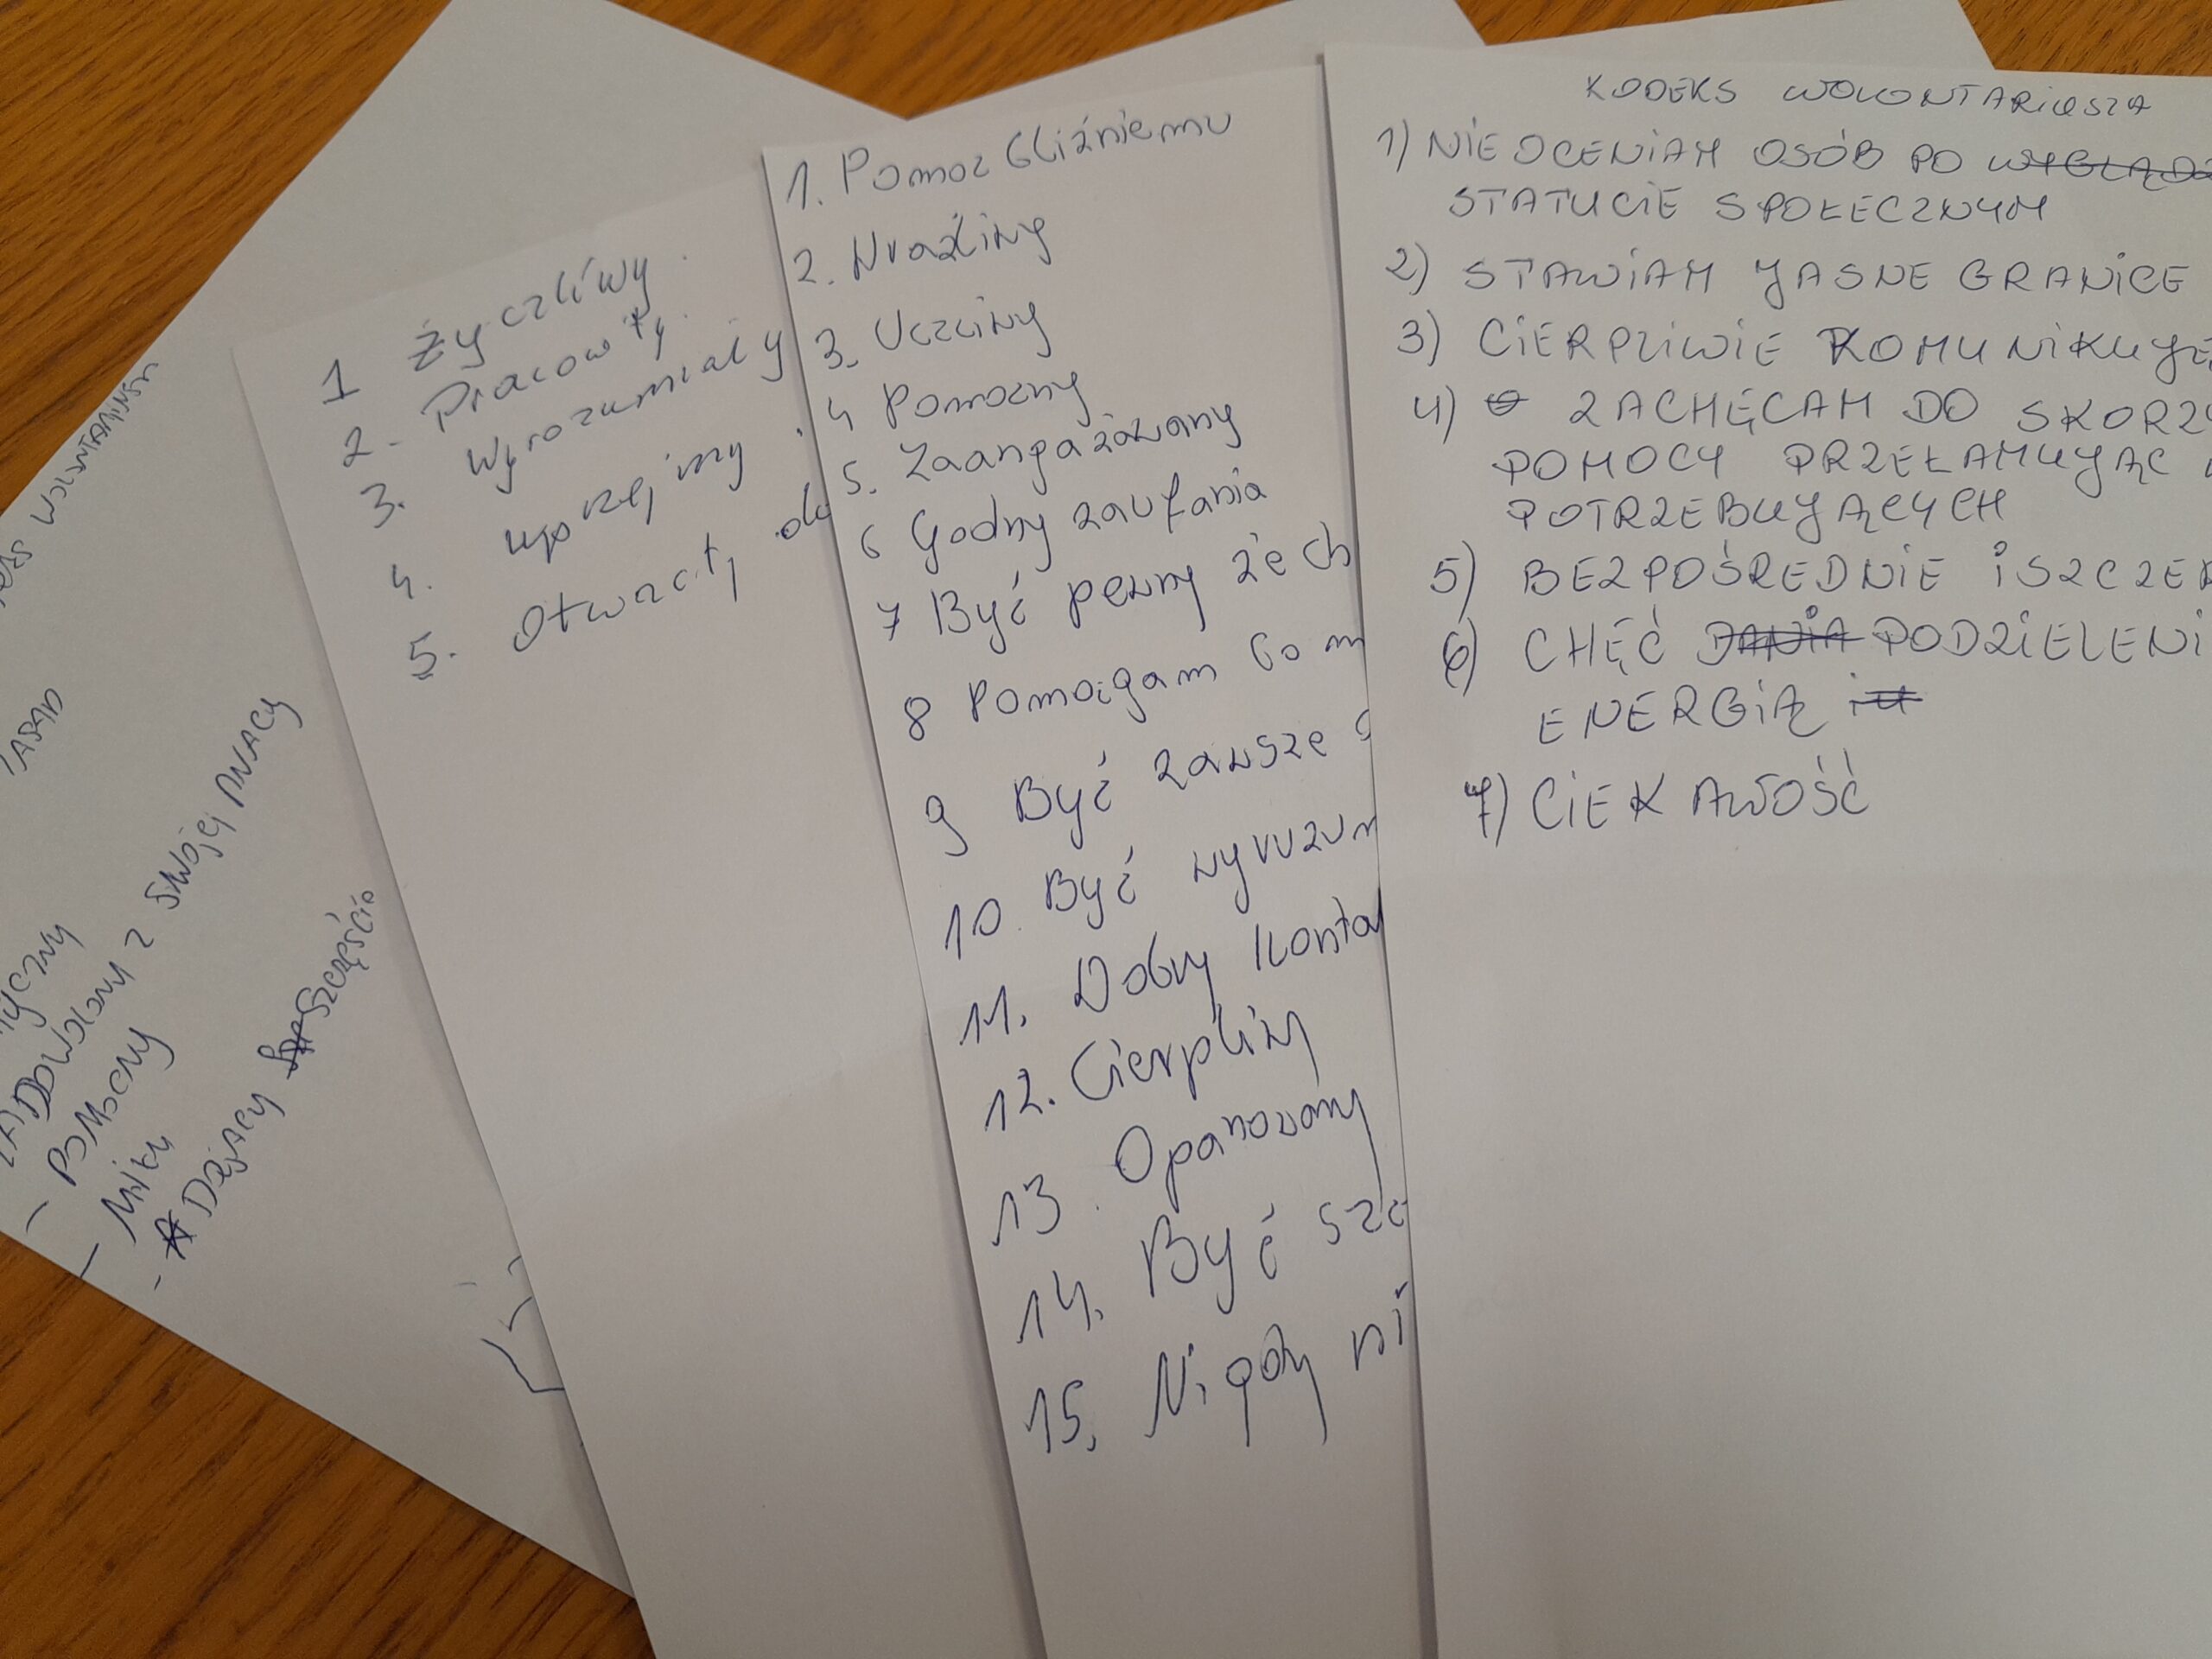 WOLONTARIUSZA
ZASAD
ZADOWOLONY Z SWOJEJ PRACY
- POMOCNY
- MIŁY
- DAJĄCY SZCZĘŚCIE
1 Życzliwy.
2- Pracowity.
3. Wyrozumiały
4. uprzejmy.
5. otwarty do
1. Pomoc bliźniemu
2. Wrażliwy
3. Uczciwy
4 Pomocny
5. Zaangażowany
6 Godny zaufania
7 Być pewny że ch
8 Pomagam bo m
9 Być zawsze
10. Być wyrozum
11. Dobry konta
12. Cierpliwy
13. Opanowany
14. Być szc
15. Nigdy ni
KODEKS WOLONTARIUSZA
1) NIE OCENIAM OSÓB PO WYGLĄDZ
STATUCIE SPOŁECZNYM
2) STAWIAM JASNE GRANICE
3) CIERPLIWIE KOMUNIKUJĘ
4) ZACHĘCAM DO SKORZY
POMOCY PRZEŁAMUJĄC
POTRZEBUJĄCYCH
5) BEZPOŚREDNIE I SZCZER
6) CHĘĆ DANIA PODZIELENI
ENERGIĄ
7) CIEKAWOŚĆ